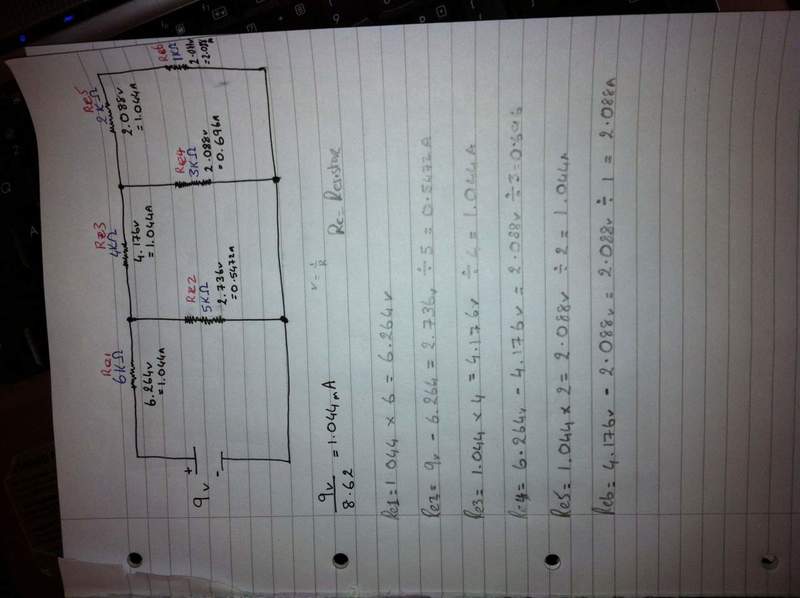 9v
+
-
Re1
6KΩ
6.264v
=1.044A
Re2
5KΩ
2.736v
=0.5472A
Re3
4KΩ
4.176v
=1.044A
Re4
3KΩ
2.088v
=0.696A
Re5
2KΩ
2.088v
=1.044A
Re6
1KΩ
9v/8.62 = 1.044mA
Re= Resistor
Re1 = 1.044 x 6 = 6.264v
Re2= 9v - 6.264 = 2.736v ÷ 5 = 0.5472A
Re3 = 1.044 x 4 = 4.176v ÷ 4 = 1.044A
Re4= 6.264v - 4.176v = 2.088v ÷ 3 = 0.696
Re5 = 1.044 x 2 = 2.088v ÷ 2 = 1.044A
Re6= 4.176v - 2.088v = 2.088v ÷ 1 = 2.088A